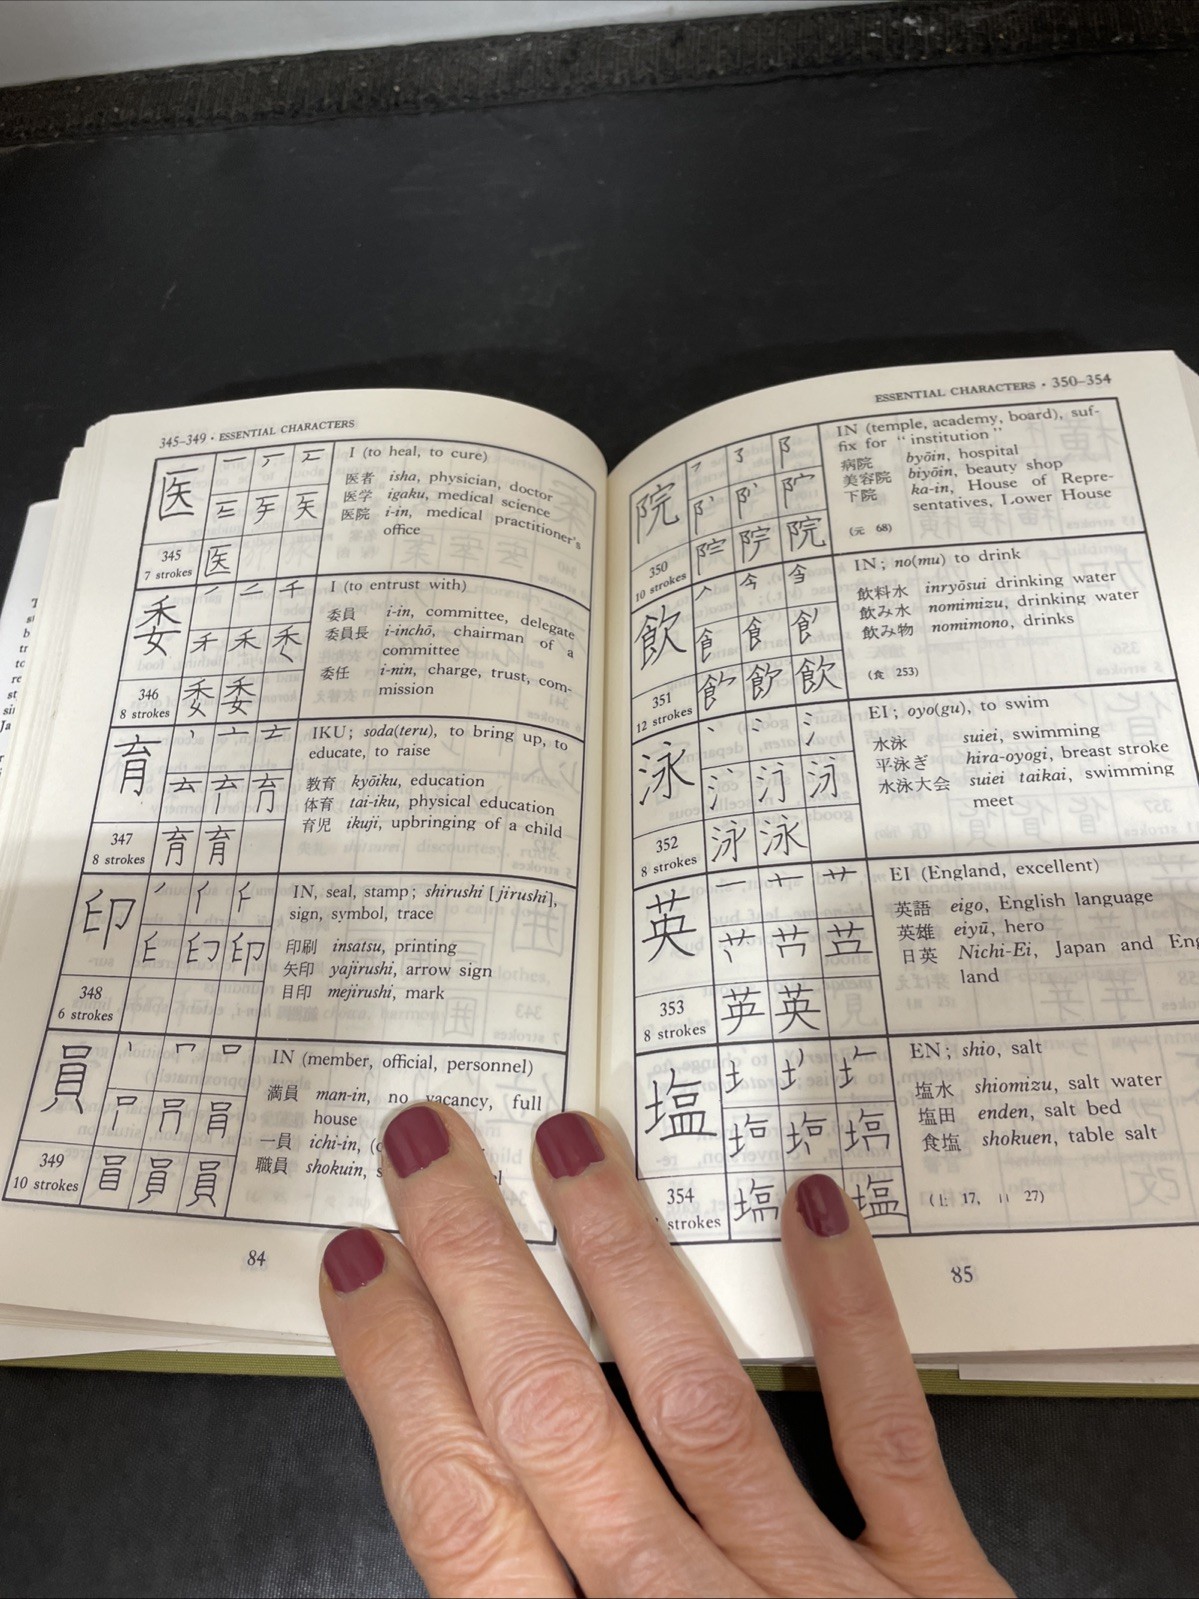 345–349 · ESSENTIAL CHARACTERS
医
345
7 strokes
I (to heal, to cure)
医者 isha, physician, doctor
医学 igaku, medical science
医院 i-in, medical practitioner's
office
委
346
8 strokes
I (to entrust with)
委員 i-in, committee, delegate
委員長 i-inchō, chairman of a
committee
委任 i-nin, charge, trust, com-
mission
育
347
8 strokes
IKU; soda(teru), to bring up, to
educate, to raise
教育 kyōiku, education
体育 tai-iku, physical education
育児 ikuji, upbringing of a child
印
348
6 strokes
IN, seal, stamp; shirushi [jirushi],
sign, symbol, trace
印刷 insatsu, printing
矢印 yajirushi, arrow sign
目印 mejirushi, mark
員
349
10 strokes
IN (member, official, personnel)
満員 man-in, no vacancy, full
house
一員 ichi-in,
職員 shokuin,
84
ESSENTIAL CHARACTERS · 350–354
院
350
10 strokes
IN (temple, academy, board), suf-
fix for "institution"
病院 byōin, hospital
美容院 biyōin, beauty shop
下院 ka-in, House of Repre-
sentatives, Lower House
(元 68)
飲
351
12 strokes
IN; no(mu) to drink
飲料水 inryōsui drinking water
飲み水 nomimizu, drinking water
飲み物 nomimono, drinks
(食 253)
泳
352
8 strokes
EI; oyo(gu), to swim
水泳 suiei, swimming
平泳ぎ hira-oyogi, breast stroke
水泳大会 suiei taikai, swimming
meet
英
353
8 strokes
EI (England, excellent)
英語 eigo, English language
英雄 eiyū, hero
日英 Nichi-Ei, Japan and Eng
land
塩
354
strokes
EN; shio, salt
塩水 shiomizu, salt water
塩田 enden, salt bed
食塩 shokuen, table salt
(土 17, 口 27)
85